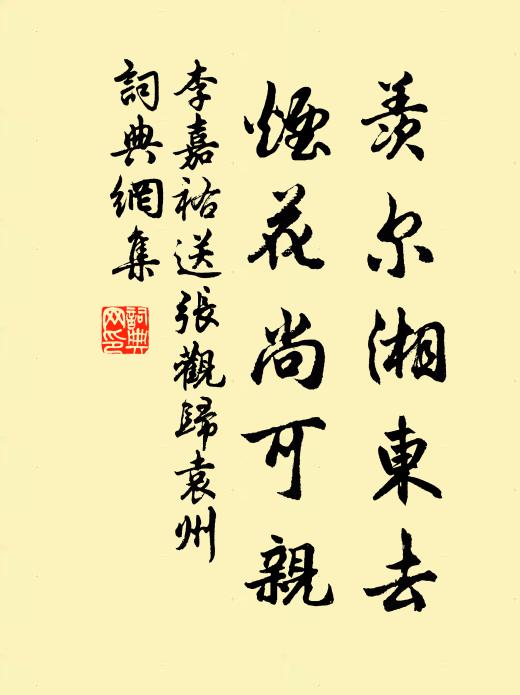 羨尔湘東去
煙花尚可親
李嘉祐送張觀歸袁州
詞典網集
詞典网印